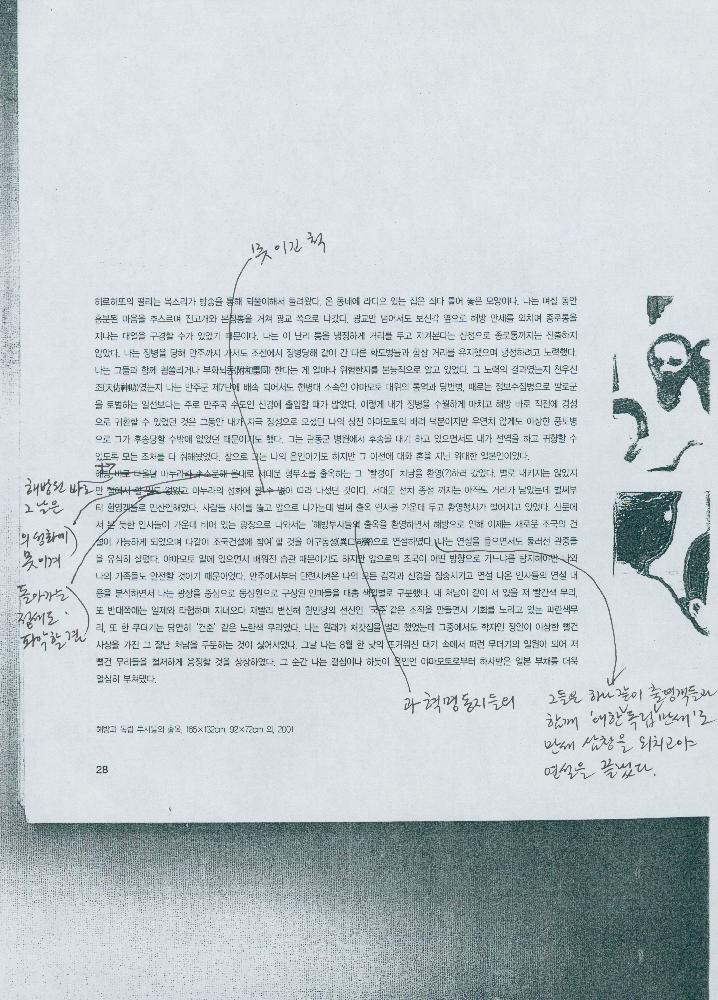 못이긴 척
히로히또의 떨리는 목소리가 방송을 통해 되풀이해서 들려왔다. 온 동네에 라디오 있는 집은 죄다 틀어 놓은 모양이다. 나는 며칠 동안
흥분된 마음을 추스르며 진고개와 본정통을 거쳐 광교 쪽으로 나갔다. 광교만 넘어서도 보신각 옆으로 해방 만세를 외치며 종로통을
지나는 대열을 구경할 수가 있었기 때문이다. 나는 이 난리 통을 냉정하게 거리를 두고 지켜본다는 심정으로 종로통까지는 진출하지
않았다. 나는 징병을 당해 만주까지 가서도 조선에서 징병당해 같이 간 다른 학도병들과 항상 거리를 유지했으며 냉정하려고 노력했다.
나는 그들과 함께 휩쓸리거나 부화뇌동(附和雷同) 한다는 게 얼마나 위험한지를 본능적으로 알고 있었다. 그 노력의 결과였는지 천우신
조(天佑神助)였는지 나는 만주군 제7관에 배속 되어서도 헌병대 소속인 야마모토 대위의 통역과 당번병, 때로는 정보수집병으로 팔로군
을 토벌하는 일선보다는 주로 만주국 수도인 신경에 출입할 때가 많았다. 이렇게 내가 징병을 수월하게 마치고 해방 바로 직전에 경성
으로 귀환할 수 있었던 것은 그동안 내가 지극 정성으로 모셨던 나의 상전 야마모토의 배려 덕분이지만 우연치 않게도 이상한 풍토병
으로 그가 후송당할 수밖에 없었던 때문이기도 했다. 그는 관동군 병원에서 후송을 대기 하고 있으면서도 내가 선역을 하고 귀향할 수
있도록 모든 조처를 다 취해놨었다. 참으로 그는 나의 은인이기도 하지만 그 이전에 대화 혼을 지닌 위대한 일본인이었다.
해방 바로 다음날 마누라의 서대문 형무소를 출옥하는 그 '빨갱이' 처남을 환영(?)하러 갔었다. 별로 내키지는 않았지
만 마누라의 성화에 할 수 없이 따라 나섰던 것이다. 서대문 전차 종점 까지는 아직도 거리가 남았는데 벌써부
터 환영객들로 인산인해였다. 사람들 사이를 뚫고 앞으로 나가는데 벌써 출옥 인사를 가운데 두고 환영행사가 벌어지고 있었다. 신문에
서 본 듯한 인사들이 가운데 비어 있는 광장으로 나와서는 '해방투사들의 출옥을 환영하면서 해방으로 인해 이제는 새로운 조국의 건
설이 가능하게 되었으며 다같이 조국건설에 참여 할 것을 이구동성(異口同聲)으로 연설하였다. 나는 연설을 들으면서도 둘러선 관중들
을 유심히 살폈다. 야마모토 밑에 있으면서 배워진 습관 때문이기도 하지만 앞으로의 조국이 어떤 방향으로 가느냐를 탐지해야만 나와
나의 가족들도 안전할 것이기 때문이었다. 만주에서부터 단련시켜온 나의 모든 감각과 신경을 집중시키고 연설 나온 인사들의 연설 내
용을 분석하면서 나는 광장을 중심으로 동심원으로 구성된 인파들을 대충 색깔별로 구분했다. 내 처남이 같이 서 있을 저 빨간색 무리,
또 반대쪽에는 일제와 타협하며 지내오다 재빨리 변신해 한민당의 전신인 '국준' 같은 조직을 만들면서 기회를 노리고 있는 파란색무
리, 또 한 무더기는 당연히 '건준' 같은 노란색 무리였다. 나는 원래가 처갓집을 멀리 했었는데 그중에서도 학자인 장인이 이상한 빨건
사상을 가진 그 잘난 처남을 두둔하는 것이 싫어서였다. 그날 나는 8월 한 낮의 뜨거워진 대기 속에서 퍼런 무더기의 일원이 되어 저
뻘건 무리들을 철저하게 응징할 것을 상상하였다. 그 순간 나는 결심이나 하듯이 은인인 야마모토로부터 하사받은 일본 부채를 더욱
열심히 부쳐댔다.
해방된 바로
그날은
의 성화에
못이겨
돌아가는
정세도
파악할 겸
과 혁명동지들의
그들은 하나같이 출영객들과
함께 '대한독립만세'로
만세 삼창을 외치고야
연설을 끝냈다.
해방과 독립 투사들의 출옥, 165×132cm, 92×72cm 외, 2001
28